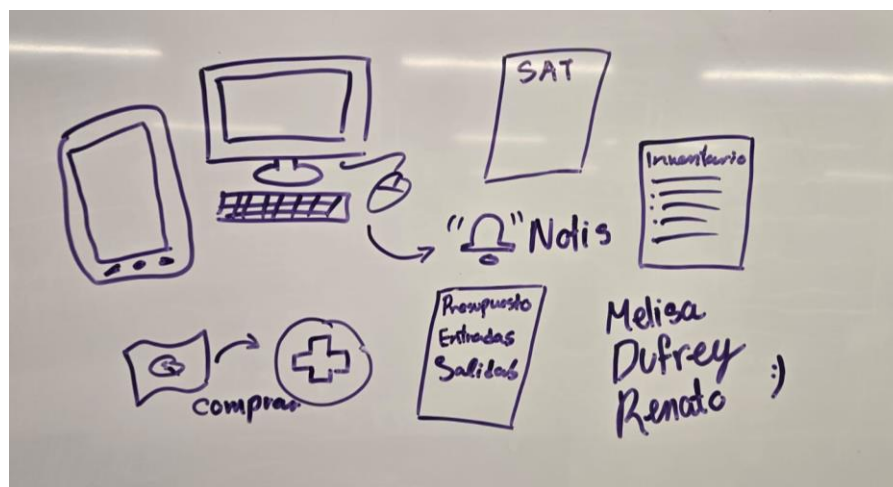 SAT
Inventario
"🔔" Notis
Presupuesto
Entradas
Salidas
comprar
Melisa
Dufrey
Renato :)